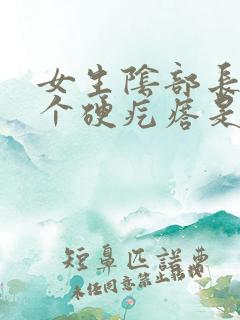 女生陰部長
个硬疙瘩是
短鼻匹諾曹
未任同意禁止转载